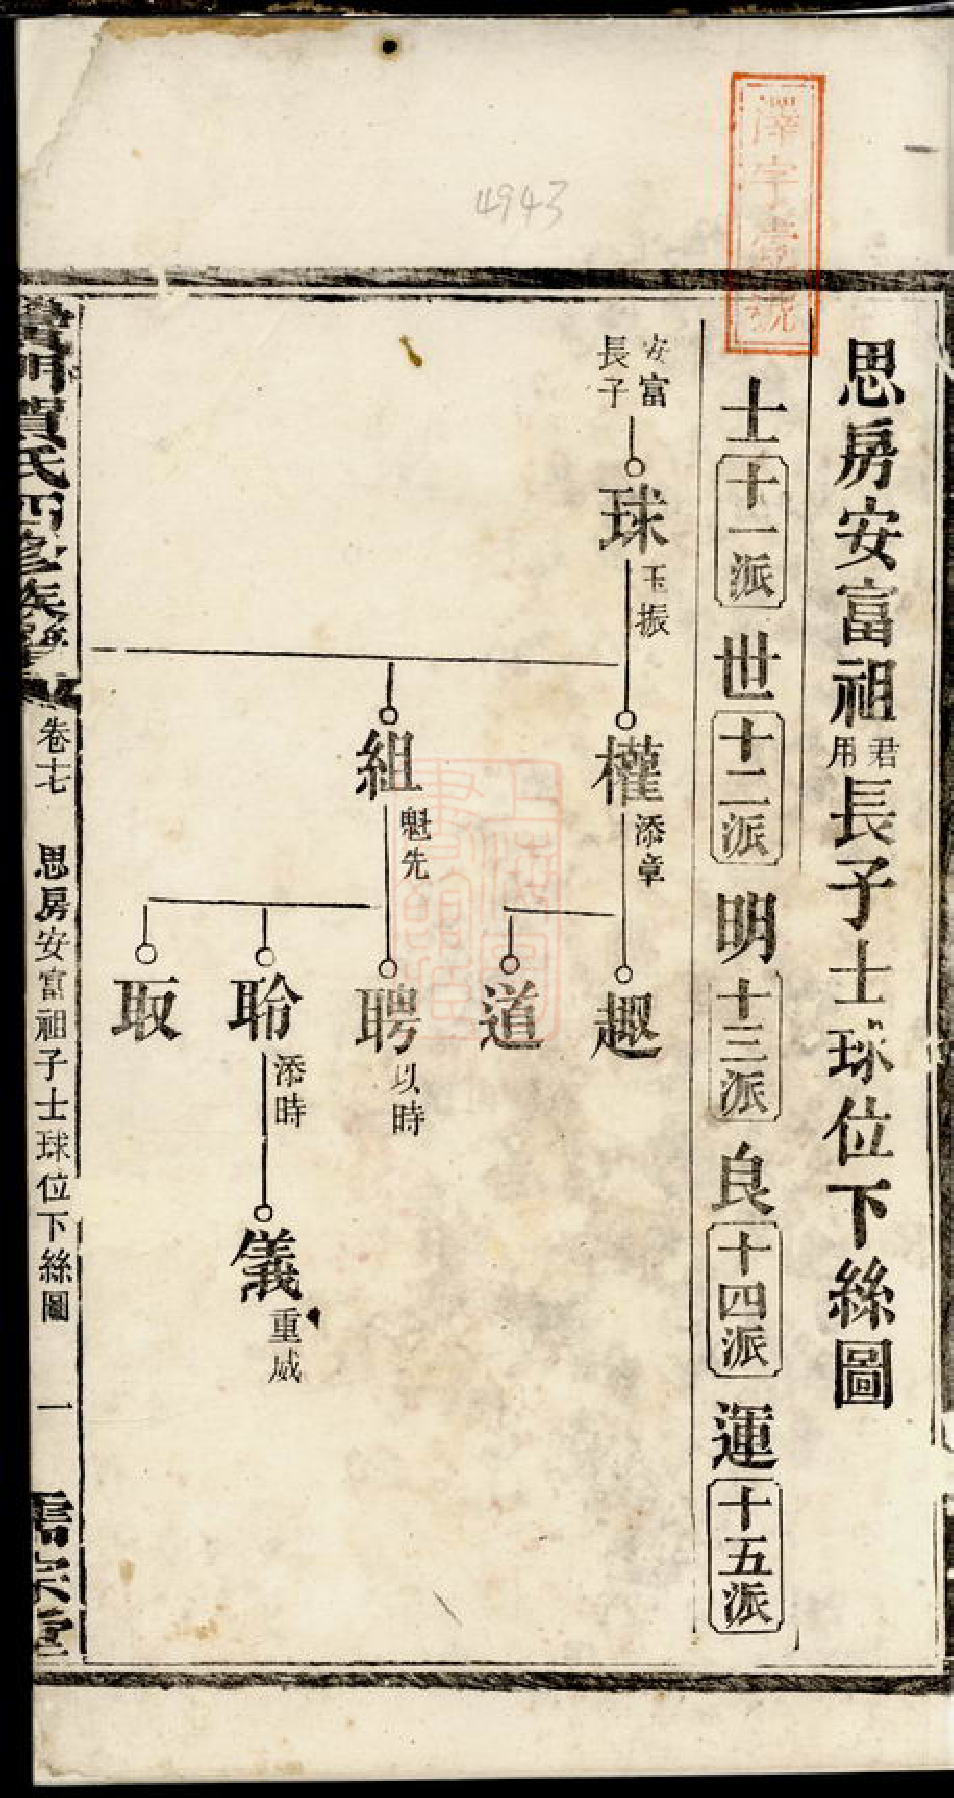 4943
思房安富祖君用長子士球位下絲圖
士十一派世十二派明十三派良十四派運十五派
安富
長子
球玉振
權添章
組魁先
趣
道
聘以時
聆添時
取
儀重威
賀氏四修族譜
卷十七 思房安富祖子士球位下絲圖 一
儒宗堂